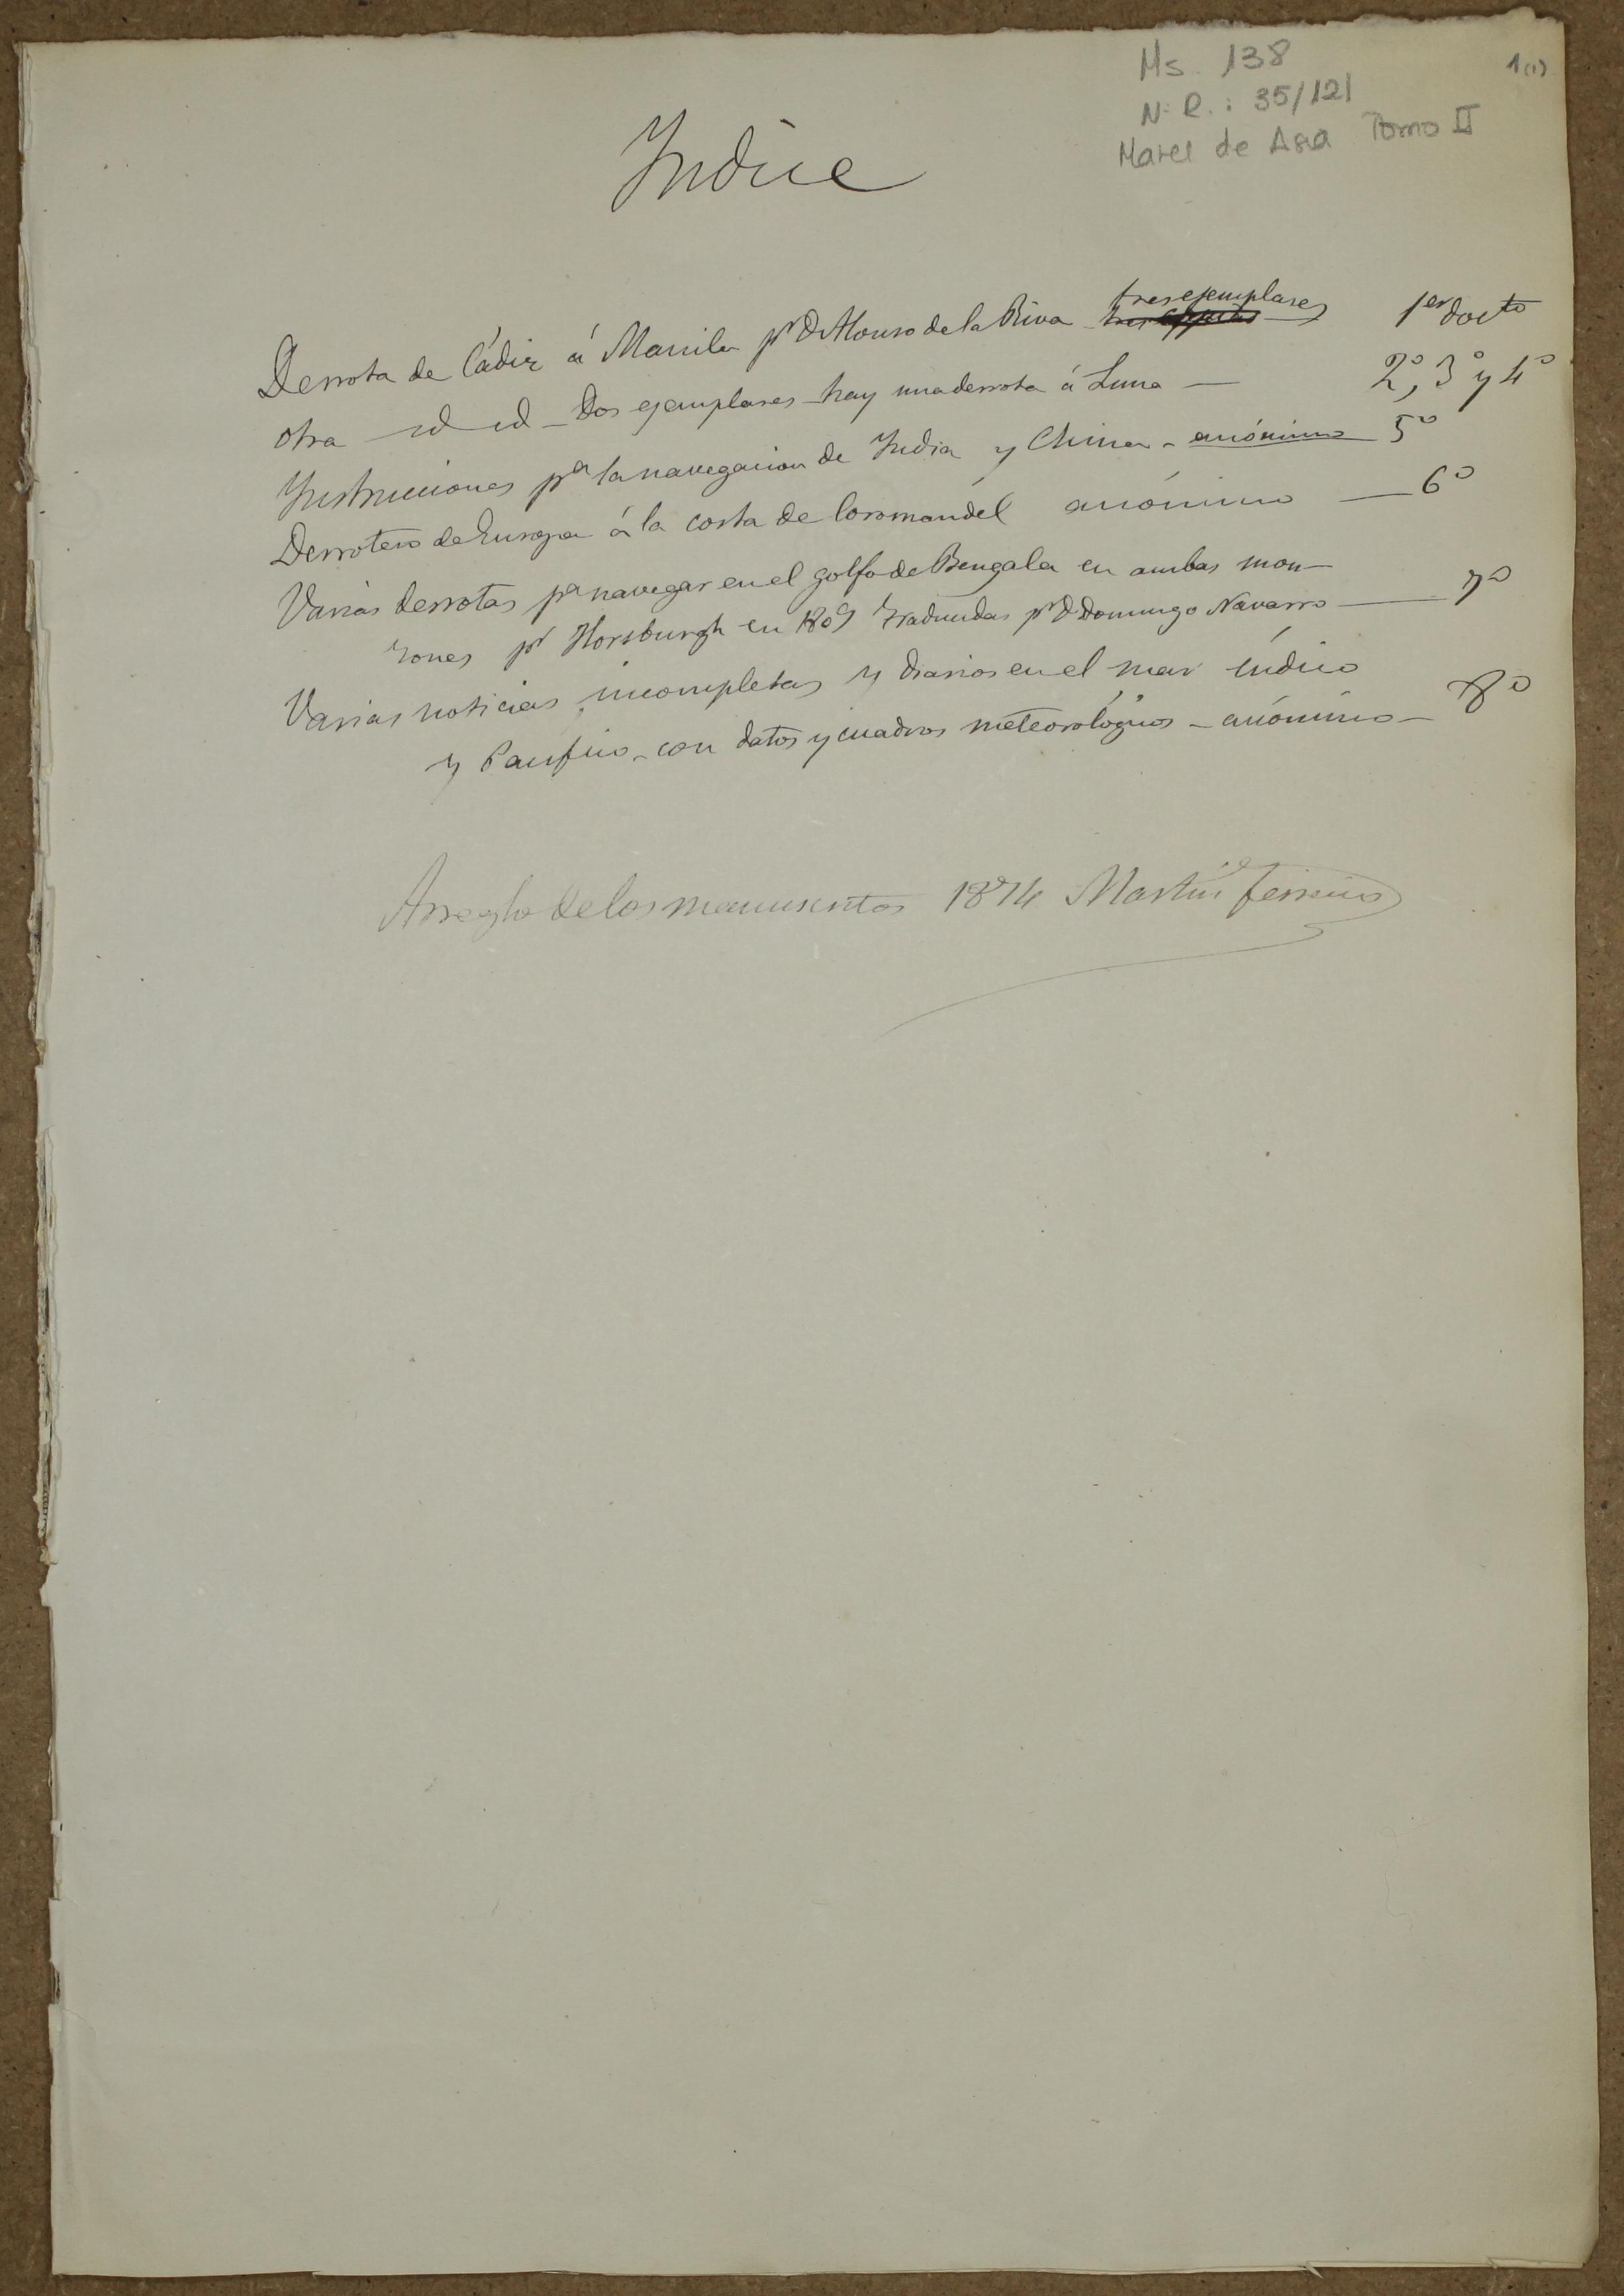 Ms. 138
1(1)
N.R.: 35/121
Mares de Asia Tomo II
Indice
tres ejemplares
Derrota de Cádiz á Manila pr D. Alonso de la Riva 1er docto
Otra id id - Dos ejemplares - hay una derrota á Luna — 2º, 3º y 4º
Instrucciones pa la navegacion de India y China - anónimo 5º
Derrotero de Europa á la costa de Coromandél anónimo — 6º
Varias derrotas pa navegar en el golfo de Bengala en ambas mon-
zones pr Horsburgh en 1809 traducidas pr D. Domingo Navarro — 7º
Varias noticias incompletas y diarios en el mar índico
y Pacífico - con datos y cuadros meteorológicos - anónimo - 8º
Arreglo de los manuscritos 1874 Martin Ferreiro